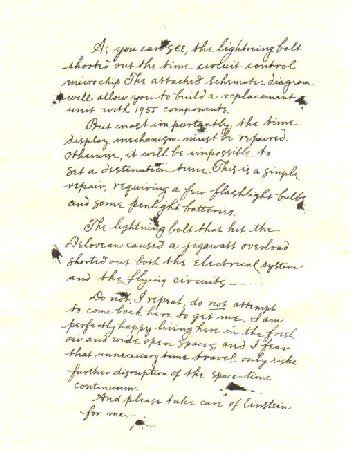 As you can see, the lightning bolt
shorted out the time circuit control
microchip. The attached schematic diagram
will allow you to build a replacement
unit with 1955 components.
But most importantly, the time
display mechanism must be repaired.
Otherwise, it will be impossible to
set a destination time. This is a simple
repair, requiring a few flashlight bulbs
and some penlight batteries.
The lightning bolt that hit the
Delorean caused a jigawatt overload
shorted out both the electrical system
and the flying circuits
Do not, I repeat, do not attempt
to come back here to get me. I am
perfectly happy living here in the fresh
air and wide open spaces, and I fear
that unnecessary time travel only risks
further disruption of the space-time
continuum.
And please take care of Einstein
for me.